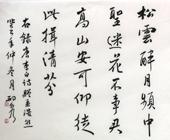 松雲醉月頻中
聖迷花不事君
高山安可仰徒
此揖清芬
右錄唐李白詩贈孟浩然
年仲冬月